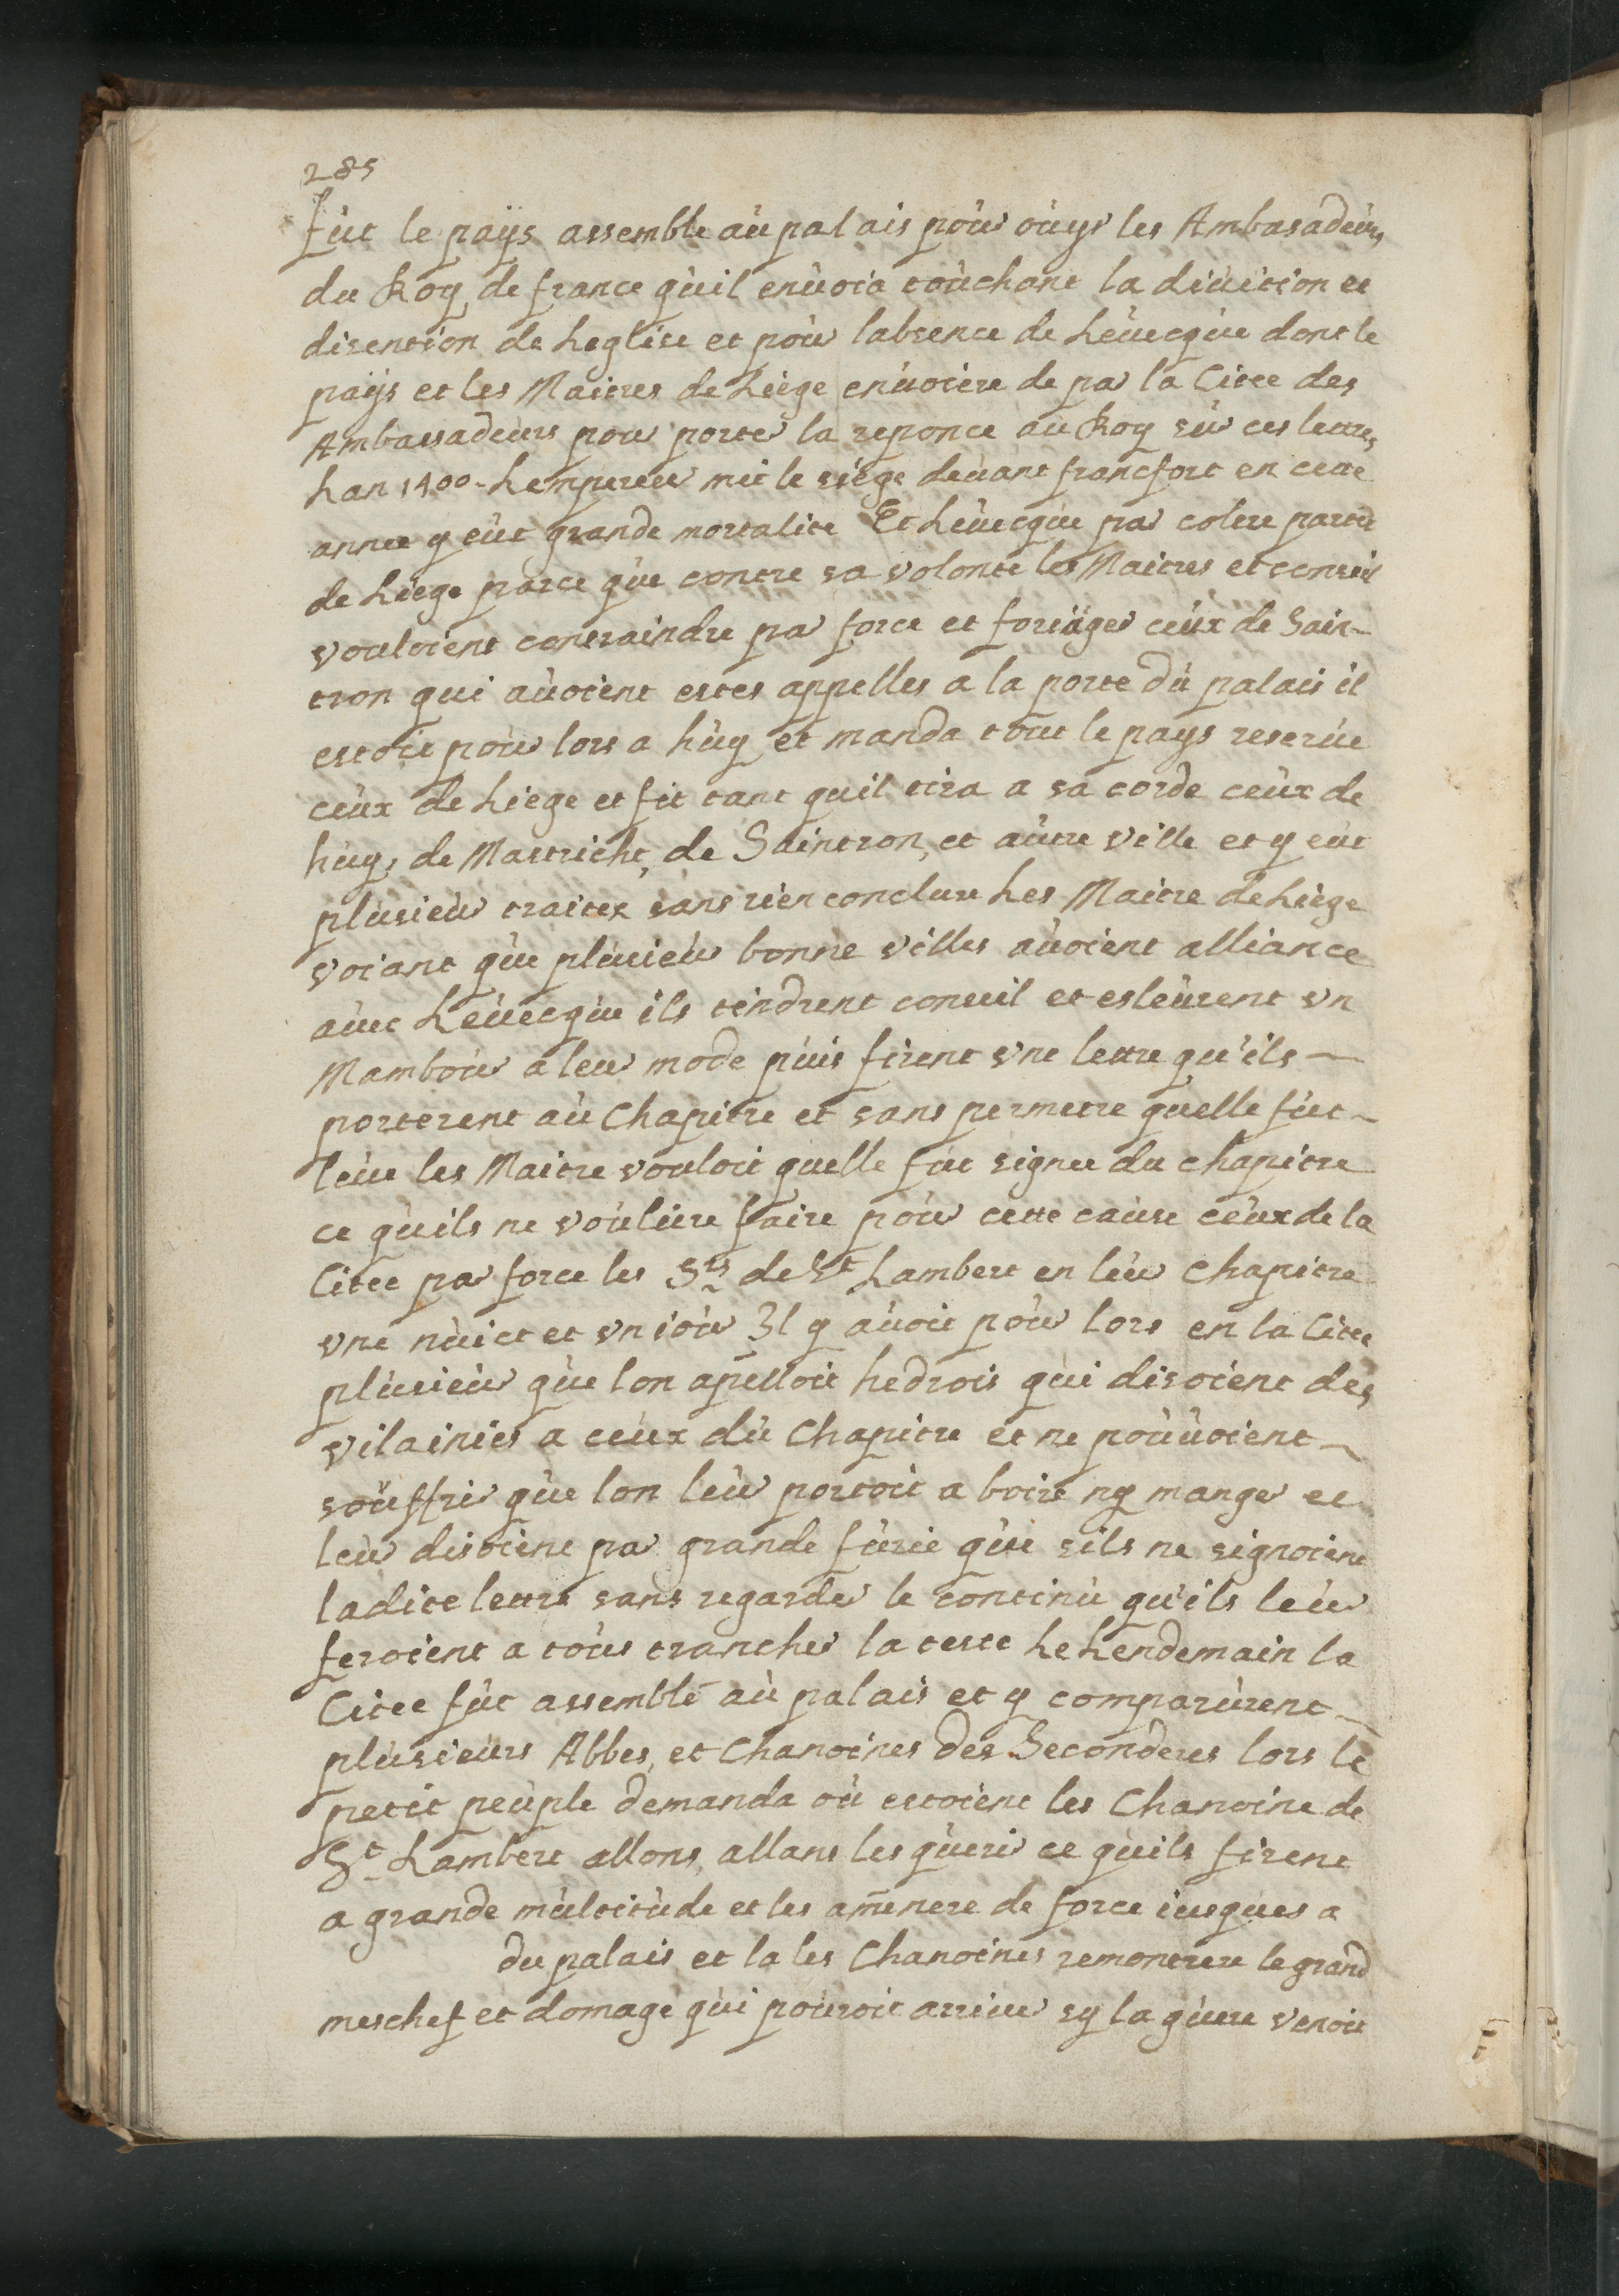 285
fut le pays assemble au palais pour ouyr les Ambasadeurs
du Roy de france quil enuoia touchant la diuition et
disention de Leglise et pour labsence de Leuecque dont le
pays et les Maitres de Liege enuoiere de par la Citee des
Ambassadeurs pour porter la reponce au Roy sur ces lettres
Lan 1400 - Lempereur mit le siege deuant francfort en cette
annee y eut grande mortalite Et Leuecque par colere partit
de Liege parce que contre sa volonte les Maitres et conseil
vouloient contraindre par force et foriuger ceux de Sain-
tron qui auoient estes appelles a la porte du palais il
estoit pour lors a huy et manda tout le pays reserue
ceux de Liege et fit tant quil tira a sa corde ceux de
huy, de Mastricht, de Saintron, et autre ville et y eut
plusieur traitex sans rien conclure Les Maitre de Liege
voiant que plusieur bonne villes auoient alliance
auec Leuecque ils tindrent conseil et esleurent vn
Mambour a leur mode puis firent vne lettre qu'ils —
porterent au Chapitre et sans permetre quelle fut —
leue les Maitre vouloit quelle fut signee du chapitre
ce quils ne vouliere faire pour cette cause ceux de la
Citee par force les Srs de St Lambert en leur chapitre
vne nuict et vn iour Il y auoit pour lors en la Citee
plusieur que lon apelloit hedrois qui disoient des
vilainies a ceux du Chapitre et ne pouuoient —
souffrir que lon leur portoit a boire ny manger et
leur disoient par grande furie que sils ne signoient
ladite lettre sans regarder le continu qu'ils leur
feroient a tous trancher la teste Le Lendemain la
Citee fut assemblé au palais et y comparurent —
plusieurs Abbes, et Chanoines des Seconderes lors le
petit peuple demanda ou estoient les Chanoine de
St Lambert allons, allans les querir ce quils firent
a grande multitude et les amenere de force iusques a
du palais et la les Chanoines remontrere le grand
meschef et domage qui pouroit arriuer sy la guere venoit